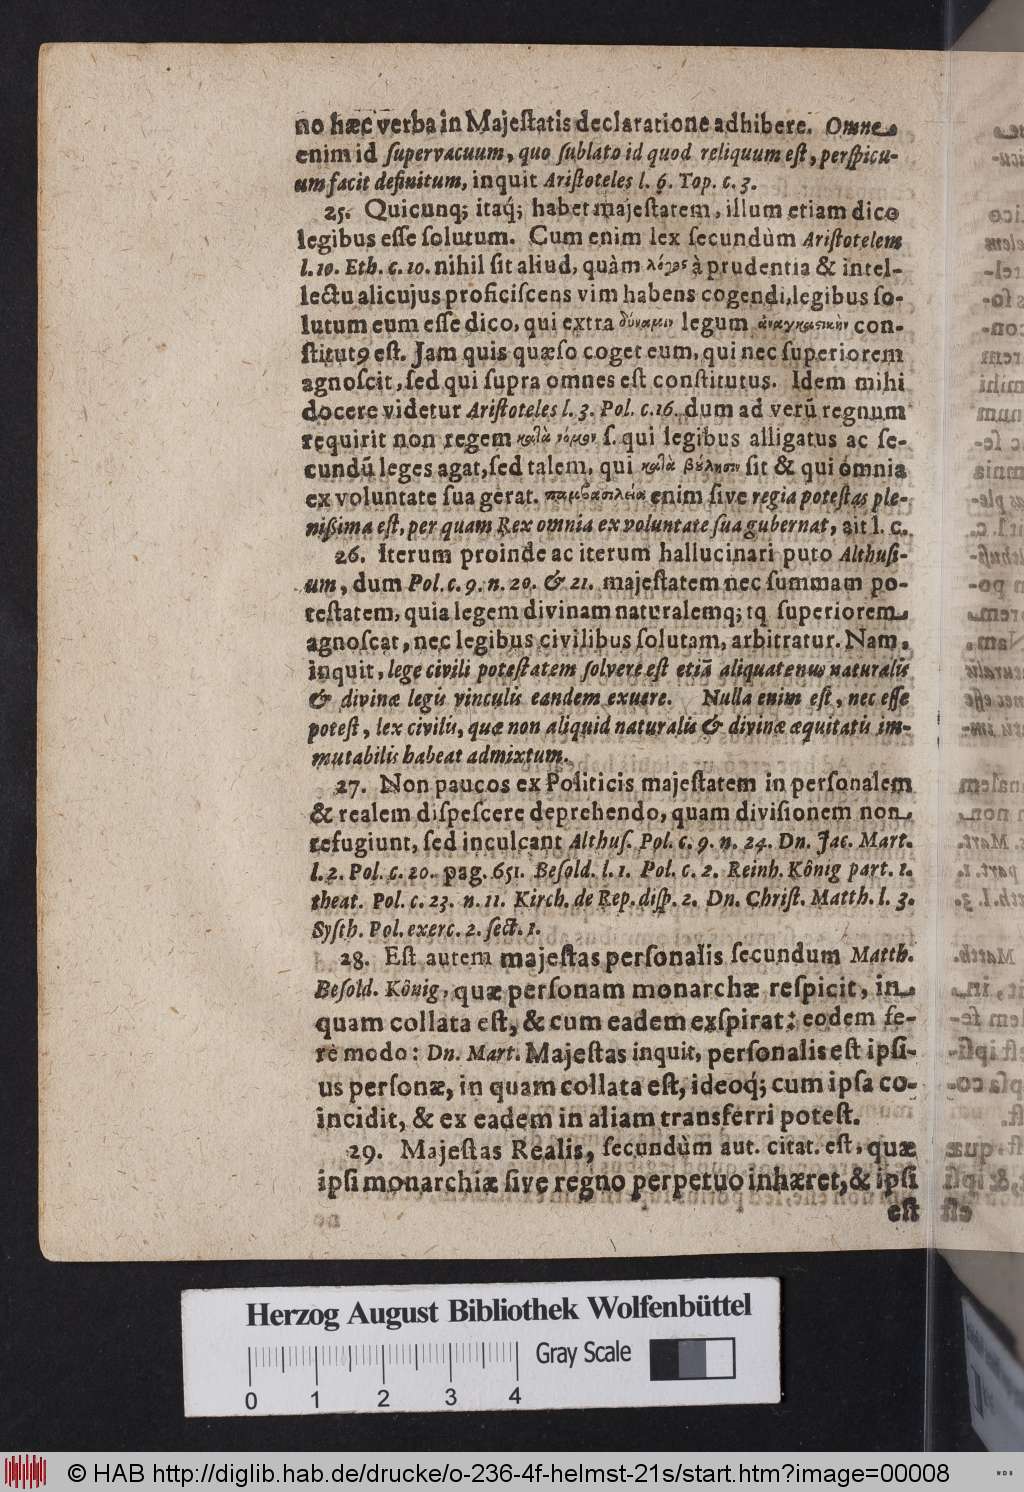 no hæc verba in Majeſtatis declaratione adhibere. Omne
enim id ſupervacuum, quo ſublato id quod reliquum eſt, perſpicu-
um facit definitum, inquit Ariſtoteles l. 6. Top. c. 3.
25. Quicunq; itaq́; habet majeſtatem, illum etiam dico
legibus eſſe ſolutum. Cum enim lex ſecundùm Ariſtotelem
l. 10. Eth. c. 10. nihil ſit aliud, quàm λόγος à prudentia & intel-
lectu alicujus proficiſcens vim habens cogendi, legibus ſo-
lutum eum eſſe dico, qui extra δύναμιν legum ἀναγκαστικὴν con-
ſtitutꝰ eſt. Jam quis quæſo coget eum, qui nec ſuperiorem
agnoſcit, ſed qui ſupra omnes eſt conſtitutus. Idem mihi
docere videtur Ariſtoteles l. 3. Pol. c. 16. dum ad verũ regnum
requirit non regem κατὰ νόμον ſ. qui legibus alligatus ac ſe-
cundũ leges agat, ſed talem, qui κατὰ βȣ́λησιν ſit & qui ómnia
ex voluntate ſua gerat. παμβασιλεία enim ſive regia poteſtas ple-
niſſima eſt, per quam Rex omnia ex voluntate ſua gubernat, ait l. c.
26. Iterum proinde ac iterum hallucinari puto Althuſi-
um, dum Pol. c. 9. n. 20. & 21. majeſtatem nec ſummam po-
teſtatem, quia legem divinam naturalemq; tq ſuperiorem
agnoſcat, nec legibus civilibus ſolutam, arbitratur. Nam,
inquit, lege civili poteſtatem ſolvere eſt etiã aliquatenus naturalis
& divinæ legis vinculis eandem exuere. Nulla enim eſt, nec eſſe
poteſt, lex civilis, quæ non aliquid naturalis & divinæ æquitatis im-
mutabilis habeat admixtum.
27. Non paucos ex Politicis majeſtatem in perſonalem
& realem diſpeſcere deprehendo, quam diviſionem non
refugiunt, ſed inculcant Althuſ. Pol. c. 9. n. 24. Dn. Jac. Mart.
l. 2. Pol. c. 20. pag. 651. Beſold. l. 1. Pol. c. 2. Reinh. Kônig part. 1.
theat. Pol. c. 23. n. 11. Kirch. de Rep. diſp. 2. Dn. Chriſt. Matth. l. 3.
Syſth. Pol. exerc. 2. ſect. 1.
28. Eſt autem majeſtas perſonalis ſecundum Matth.
Beſold. Kônig, quæ perſonam monarchæ reſpicit, in
quam collata eſt, & cum eadem exſpirat: eodem fe-
rè modo: Dn. Mart. Majeſtas inquit, perſonalis eſt ipſi-
us perſonæ, in quam collata eſt, ideoq́; cum ipſa co-
incidit, & ex eadem in aliam transferri poteſt.
29. Majeſtas Realis, ſecundùm aut. citat. eſt, quæ
ipſi monarchiæ ſive regno perpetuo inhæret, & ipſi
eſt
Herzog August Bibliothek Wolfenbüttel
0 1 2 3 4 Gray Scale
© HAB http://diglib.hab.de/drucke/o-236-4f-helmst-21s/start.htm?image=00008